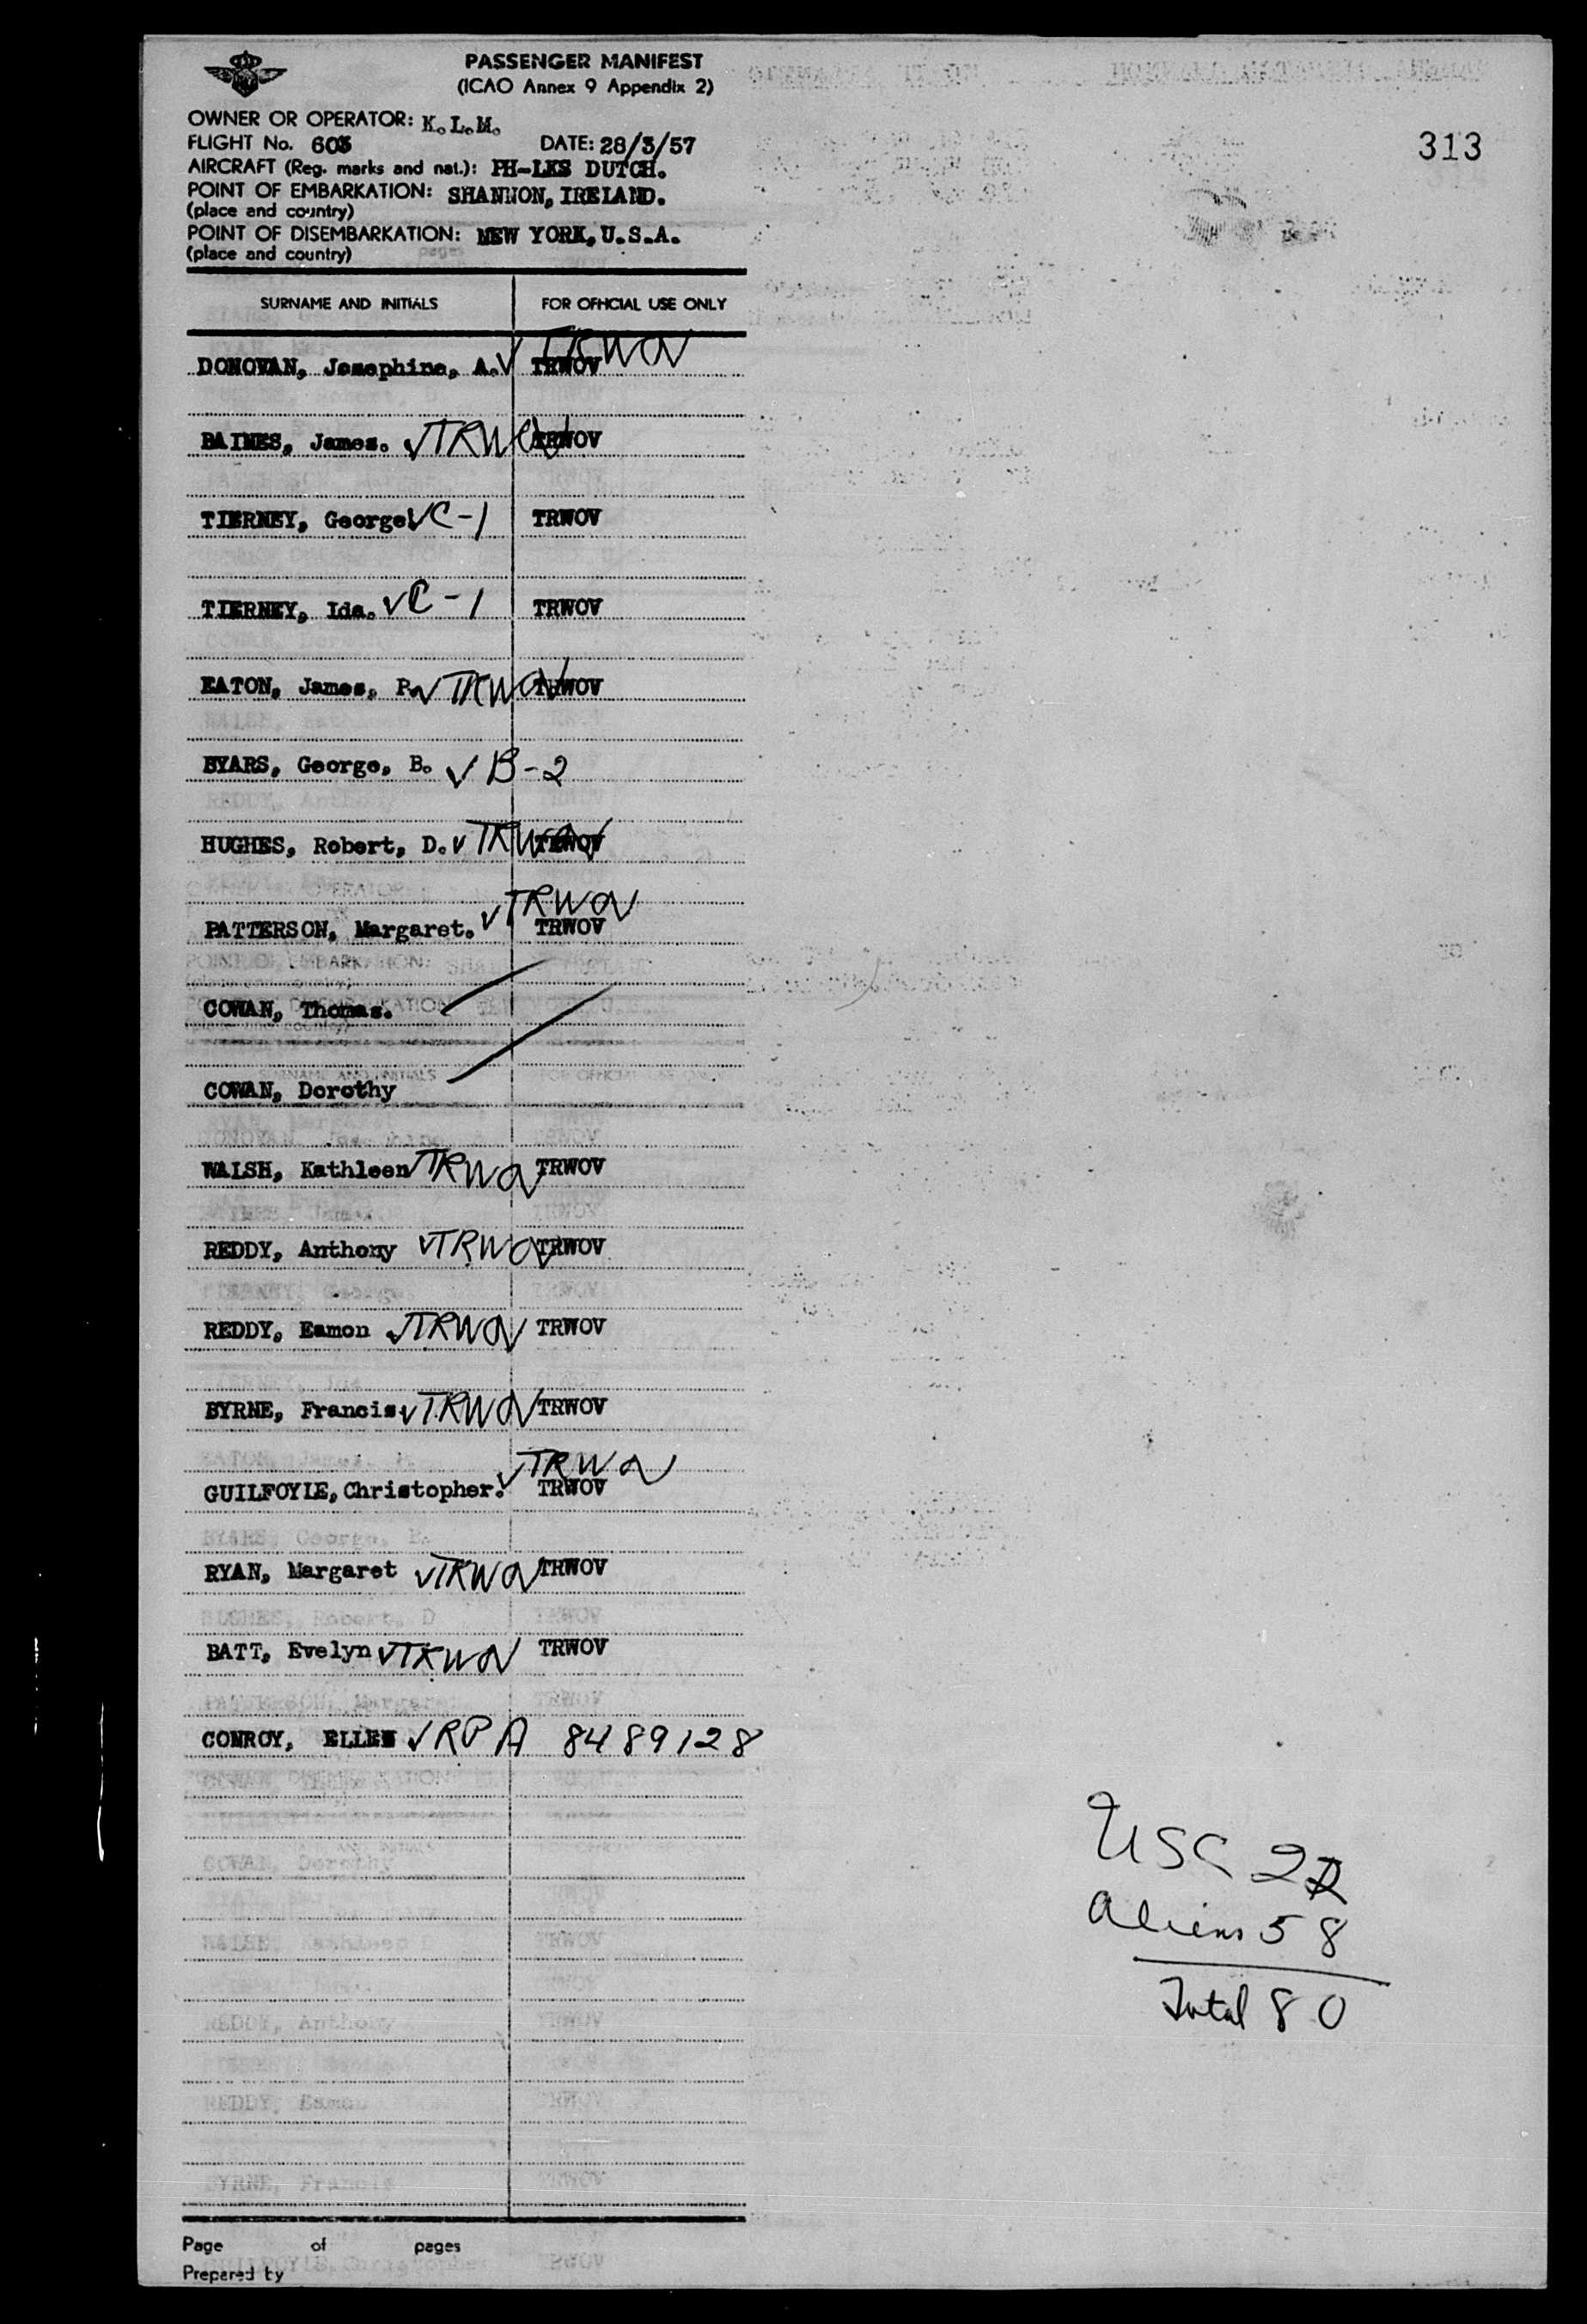 PASSENGER MANIFEST
(ICAO Annex 9 Appendix 2)
OWNER OR OPERATOR: K.L.M.
FLIGHT No. 603 DATE: 28/3/57
313
AIRCRAFT (Reg. marks and nat.): PH-LKS DUTCH.
POINT OF EMBARKATION: SHANNON, IRELAND.
(place and country)
POINT OF DISEMBARKATION: NEW YORK, U.S.A.
(place and country)
SURNAME AND INITIALS FOR OFFICIAL USE ONLY
DONOVAN, Josephine, A. ✓ TRWOV TRWOV
BAINES, James. ✓ TRWOV TRWOV
TIERNEY, George. ✓ C-1 TRWOV
TIERNEY, Ida. ✓ C-1 TRWOV
EATON, James, P. ✓ TRWOV TRWOV
BYARS, George, B. ✓ B-2
HUGHES, Robert, D. ✓ TRWOV TRWOV
PATTERSON, Margaret. ✓ TRWOV TRWOV
COWAN, Thomas.
COWAN, Dorothy
WALSH, Kathleen ✓ TRWOV TRWOV
REDDY, Anthony ✓ TRWOV TRWOV
REDDY, Eamon ✓ TRWOV TRWOV
BYRNE, Francis. ✓ TRWOV TRWOV
GUILFOYLE, Christopher. ✓ TRWOV TRWOV
RYAN, Margaret ✓ TRWOV TRWOV
BATT, Evelyn ✓ TRWOV TRWOV
CONROY, ELLEN ✓ RP A 8489128
USC 22
Aliens 58
Total 80
Page of pages
Prepared by